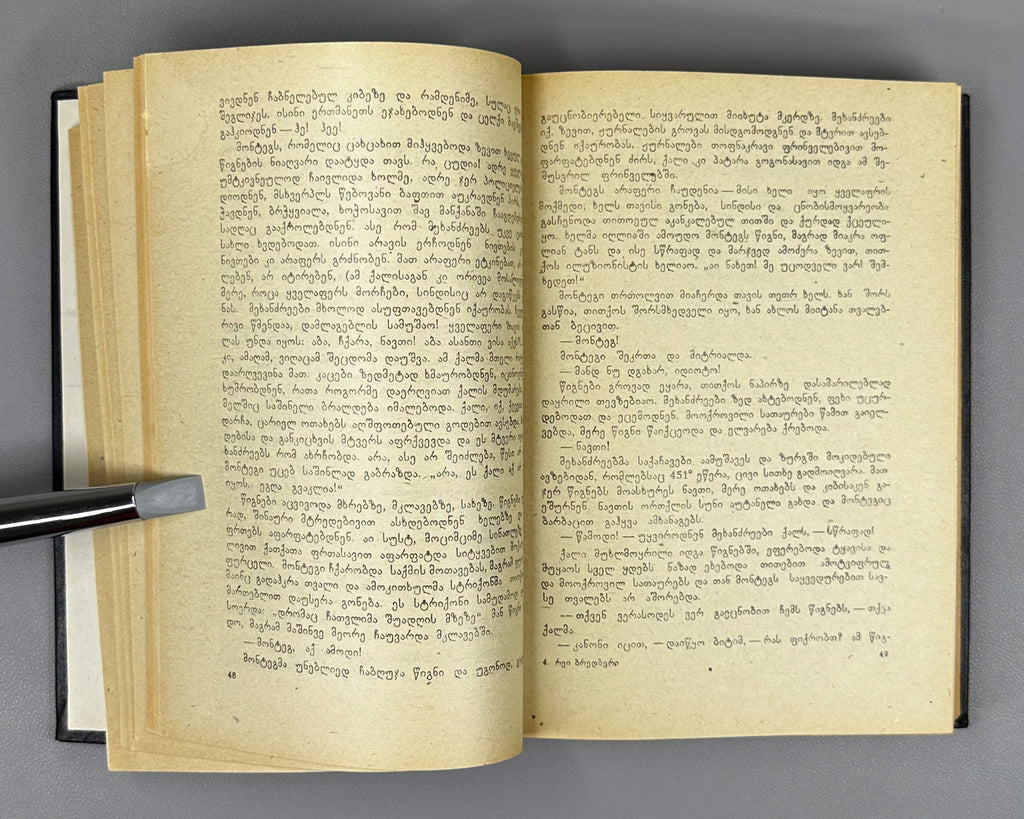 ვიედნენ ჩაბნელებულ კიბეზე და რამდენიმე, სულაც
შეგლიჯეს. ისინი ერთმანეთს ეჯახებოდნენ და ცელქი
გაჰკიოდნენ — ჰე! ჰეე!
მონტეგს, რომელიც ცახცახით მიჰყვებოდა ზევით
წიგნების ნიაღვარი დაატყდა თავს. რა ცუდია! ადრე
უმტკივნეულოდ ჩაივლიდა ხოლმე, ადრე ჯერ
დიოდნენ, მსხვერპლს წებოვანი ბაფთით აუკრავდნენ პირს,
ჰავდნენ, ბრჭყვიალა, ხოჭოსავით შავ მანქანაში
სადღაც გააქროლებდნენ. ასე რომ მეხანძრეებს უკვე
სახლი ხვდებოდათ. ისინი არავის ერჩოდნენ ნივთების
ნივთები კი არაფერს გრძნობენ. მათ არაფერი ეტკინებათ, არ
ლებენ, არ იტირებენ, (ამ ქალისაგან კი ორივეა
მერე, როცა ყველაფერს მორჩები, სინდისიც არ
ნას. მეხანძრეები მხოლოდ ასუფთავებდნენ იქაურობას.
რივი წმენდაა, დამლაგებლის სამუშაო! ყველაფერი
ლას უნდა იყოს: აბა, ჩქარა, ნავთი! აბა ასანთი ვისა აქვს!
კი, ამაღამ, ვიღაცამ შეცდომა დაუშვა. ამ ქალმა მთელი
დაარღვევინა მათ. კაცები ზედმეტად ხმაურობდნენ,
ხუმრობდნენ, რათა როგორმე დაერღვიათ ქალის
მელშიც საშინელი ბრალდება იმალებოდა. ქალი, იქ,
დარჩა, ცარიელ ოთახებს აღშფოთებული გოდებით ავსებდა,
დებისა და განკიცხვის მტვერს აფრქვევდა და ეს მტვერი
ხანძრეებს რომ ახრჩობდა. არა, ასე არ შეიძლება, წესი
მონტეგი უცებ საშინლად გაბრაზდა. „არა, ეს ქალი აქ არ
იყოს. ეგღა გვაკლია!“
წიგნები აცვივოდა მხრებზე, მკლავებზე, სახეზე. წიგნები
რად, შინაური მტრედებივით ასხდებოდნენ ხელებზე
ფრთებს აფართატებდნენ. აი სუსტ, მოციმციმე სინათლეზე
ლივით ქათქათა ფრთასავით აფარფატდა სიტყვებით
ფურცელი. მონტეგი ჩქარობდა საქმის მოთავებას, მაგრამ
მაინც გადაჰკრა თვალი და ამოკითხულმა სტრიქონმა
მართებლით დაუსერა გონება. ეს სტრიქონი სამუდამოდ
სოვრდა: „დრომაც ჩათვლიმა შუადღის მზეზე“ მან წიგნი
დო, მაგრამ მაშინვე მეორე ჩაუვარდა მკლავებში.
— მონტეგ, აქ ამოდი!
მონტეგმა უნებლიედ ჩაბღუჯა წიგნი და უგონოდ,
48
გაუცნობიერებელი. სიყვარულით მიიხუტა მკერდზე. მეხანძრეები
იქ. ზევით, ჟურნალების გროვას მისდგომოდნენ და მტვრით ავსებ-
დნენ იქაურობას. ჟურნალები თოფნაკრავი ფრინველებივით მო-
ფარფატებდნენ ძირს, ქალი კი პატარა გოგონასავით იდგა ამ შე-
მუსვრილ ფრინველებში.
მონტეგს არაფერი ჩაუდენია — მისი ხელი იყო ყველაფრის
მოქმედი; ხელს თავისი გონება, სინდისი და ცნობისმოყვარეობა
გასჩენოდა თითოეულ აკანკალებულ თითში და ქურდად ქცეული-
ყო. ხელმა იღლიაში ამოუდო მონტეგს წიგნი, მაგრად მიაკრა ოფ-
ლიან ტანს და ისე სწრაფად და მარჯვედ ამოძვრა ზევით, თით-
ქოს ილუზიონისტის ხელიაო. „აი ნახეთ! მე უცოდველი ვარ! შემ-
ხედეთ!“
მონტეგი თრთოლვით მიაჩერდა თავის თეთრ ხელს. ხან შორს
გასწია, თითქოს შორსმხედველი იყო, ხან ახლოს მიიტანა თვალებ-
თან ბეცივით.
— მონტეგ!
მონტეგი შეკრთა და მიტრიალდა.
— მანდ ნუ დგახარ, იდიოტო!
წიგნები გროვად ეყარა, თითქოს ნაპირზე დასამარილებლად
დაყრილი თევზებიაო. მეხანძრეები ზედ ახტებოდნენ, ფეხი უცურ-
დებოდათ და ეცემოდნენ. მოოქროვილი სათაურები წამით გაიელ-
ვებდა, მერე წიგნი წაიქცეოდა და ელვარება ქრებოდა.
— ნავთი!
მეხანძრეებმა საქაჩავები აამუშავეს და ზურგში მოკიდებული
ავზებიდან, რომლებსაც 451° ეწერა, ცივი სითხე გადმოიღვარა. მათ
ჯერ წიგნებს მოასხურეს ნავთი, მერე ოთახებს და კიბისაკენ გა-
ეშურნენ. ნავთის ორთქლის სუნი აუტანელი გახდა და მონტეგიც
ბარბაცით გაჰყვა ამხანაგებს.
— წამოდი! — უყვიროდნენ მეხანძრეები ქალს, — სწრაფად!
ქალი მუხლმოყრილი იდგა წიგნებში, ეფერებოდა ტყავისა და
მუყაოს სველ ყდებს ნაზად ეხებოდა თითებით ამოტვიფრულ
და მოოქროვილ სათაურებს და თან მონტეგს საყვედურებით სავ-
სე თვალებს არ აშორებდა.
— თქვენ ვერასოდეს ვერ გაეცნობით ჩემს წიგნებს, — თქვა
ქალმა
— კანონი იცით, — დაიწყო ბიტიმ, — რას ფიქრობთ? ამ წიგ-
4. რეი ბრედბერი
49